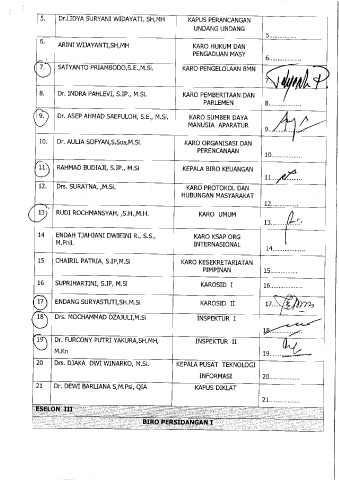 5. Dr.LIDYA SURYANI WIDAYATI, SH,MH KAPUS PERANCANGAN UNDANG UNDANG 5..............
6. ARINI WIJAYANTI,SH,MH KARO HUKUM DAN PENGADUAN MASY 6..............
7. SATYANTO PRIAMBODO,S.E.,M.Si. KARO PENGELOLAAN BMN 7
8. Dr. INDRA PAHLEVI, S.IP., M.Si. KARO PEMBERITAAN DAN PARLEMEN 8..............
9. Dr. ASEP AHMAD SAEFULOH, S.E., M.Si. KARO SUMBER DAYA MANUSIA APARATUR 9..............
10. Dr. AULIA SOFYAN,S.Sos,M.Si. KARO ORGANISASI DAN PERENCANAAN 10..............
11 RAHMAD BUDIAJI, S.IP., M.Si KEPALA BIRO KEUANGAN 11..............
12. Drs. SURATNA, ,M.Si. KARO PROTOKOL DAN HUBUNGAN MASYARAKAT 12..............
13 RUDI ROCHMANSYAH, ,S.H.,M.H. KARO UMUM 13..............
14 ENDAH TJAHJANI DWIRINI R., S.S., M.Phil. KARO KSAP ORG INTERNASIONAL 14..............
15 CHAIRIL PATRIA, S.IP,M.Si KARO KESEKRETARIATAN PIMPINAN 15..............
16 SUPRIHARTINI, S.IP, M.Si KAROSID I 16..............
17 ENDANG SURYASTUTI,SH.M.Si KAROSID II 17..............
18 Drs. MOCHAMMAD DZAJULI,M.Si INSPEKTUR I 18..............
19 Dr. FURCONY PUTRI YAKURA,SH,MH, M.Kn INSPEKTUR II 19..............
20 Drs. DJAKA DWI WINARKO, M.Si. KEPALA PUSAT TEKNOLOGI INFORMASI 20..............
21 Dr. DEWI BARLIANA S,M.Psi, QIA KAPUS DIKLAT 21..............
ESELON III
BIRO PERSIDANGAN I